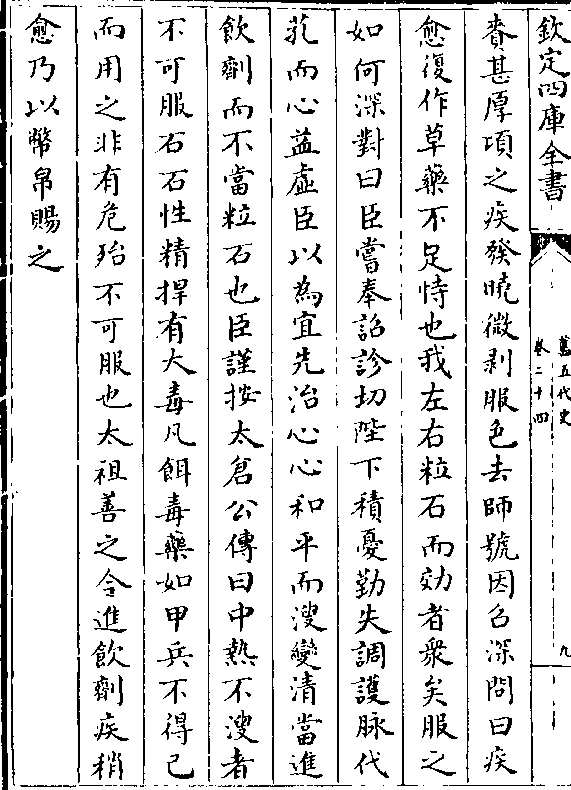 欽定四庫全書
舊五代史
卷二十四
九
賚甚厚頃之疾發曉微剥服色去師號因召深問曰疾
愈復作草藥不足恃也我左右粒石而効者衆矣服之
如何深對曰臣嘗奉詔診切陛下積憂勤失調護脉代
芤而心益虚臣以為宜先治心心和平而溲變清當進
飲劑而不當粒石也臣謹按太倉公傳曰中熱不溲者
不可服石石性精捍有大毒凡餌毒藥如甲兵不得已
而用之非有危殆不可服也太祖善之令進飲劑疾稍
愈乃以幣帛賜之